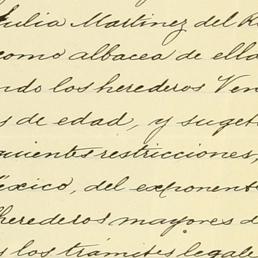 Julia Martinez del R
como albacea de ella
ndo los herederos Ven
s de edad, y sugeto
guientes restricciones,
éxico, del exponente
herederos mayores d
s los trámites legale